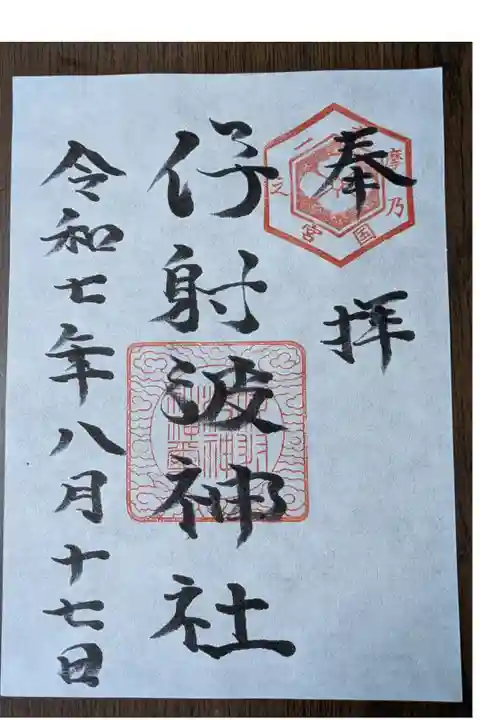 奉拝
伊射波神社
令和七年八月十七日
摩乃国
一之宮